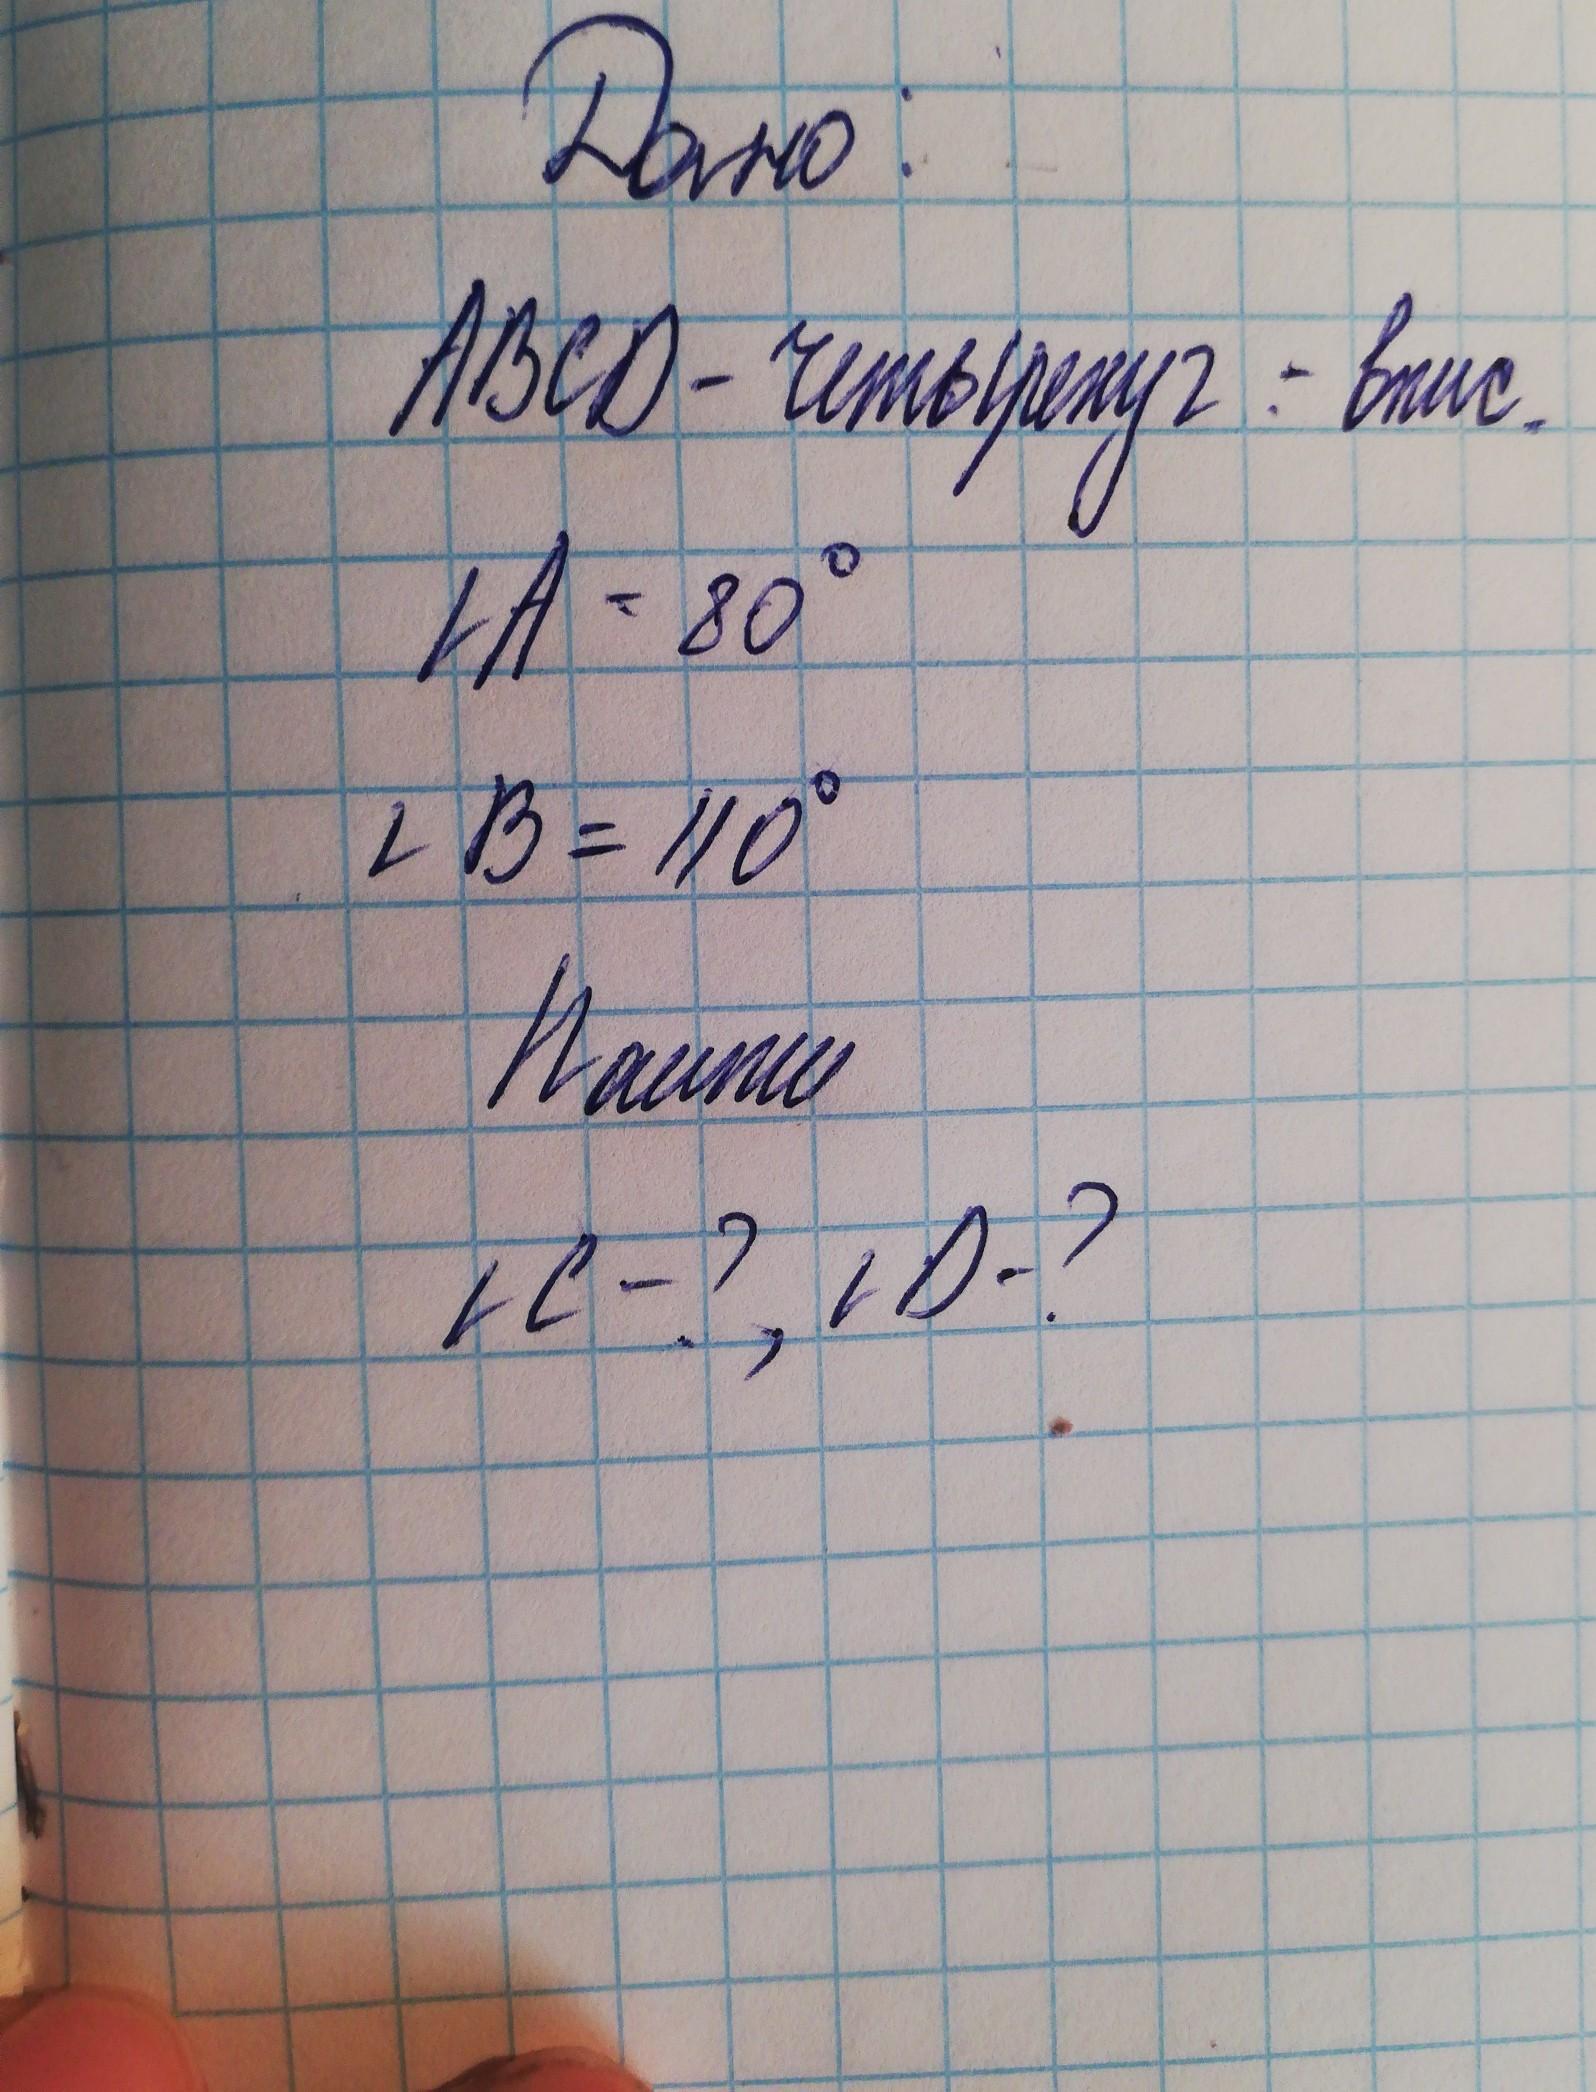 Дано:
ABCD - четырехуг - впис.
∠A = 80°
∠B = 110°
Наити
∠C - ?, ∠D - ?